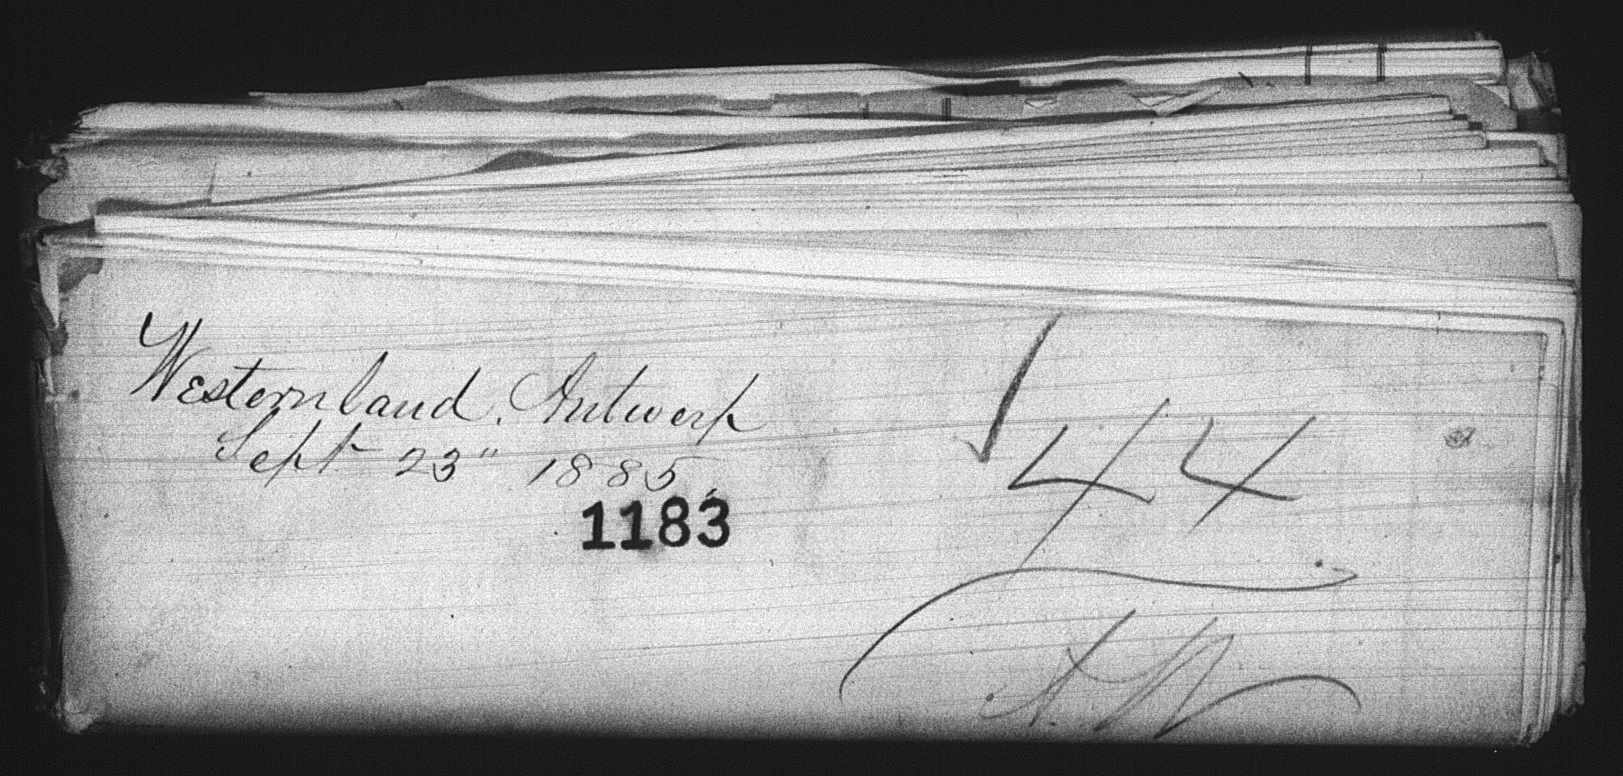 Westernland. Antwerp
Sept 23" 1885.
1183
44